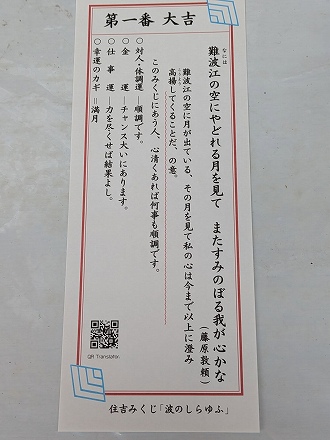 第一番 大吉
なにはえ
難波江の空にやどれる月を見て またすみのぼる我が心かな
(藤原敦頼)
難波江の空に月が出ている、その月を見て私の心は今まで以上に澄み
高揚してくることだ、の意。
このみくじにあう人、心清くあれば何事も順調です。
○対人・体調運=順調です。
○金運=チャンス大いにあります。
○仕事運=力を尽くせば結果よし。
○幸運のカギ=満月
QR Translator
住吉みくじ「波のしらゆふ」